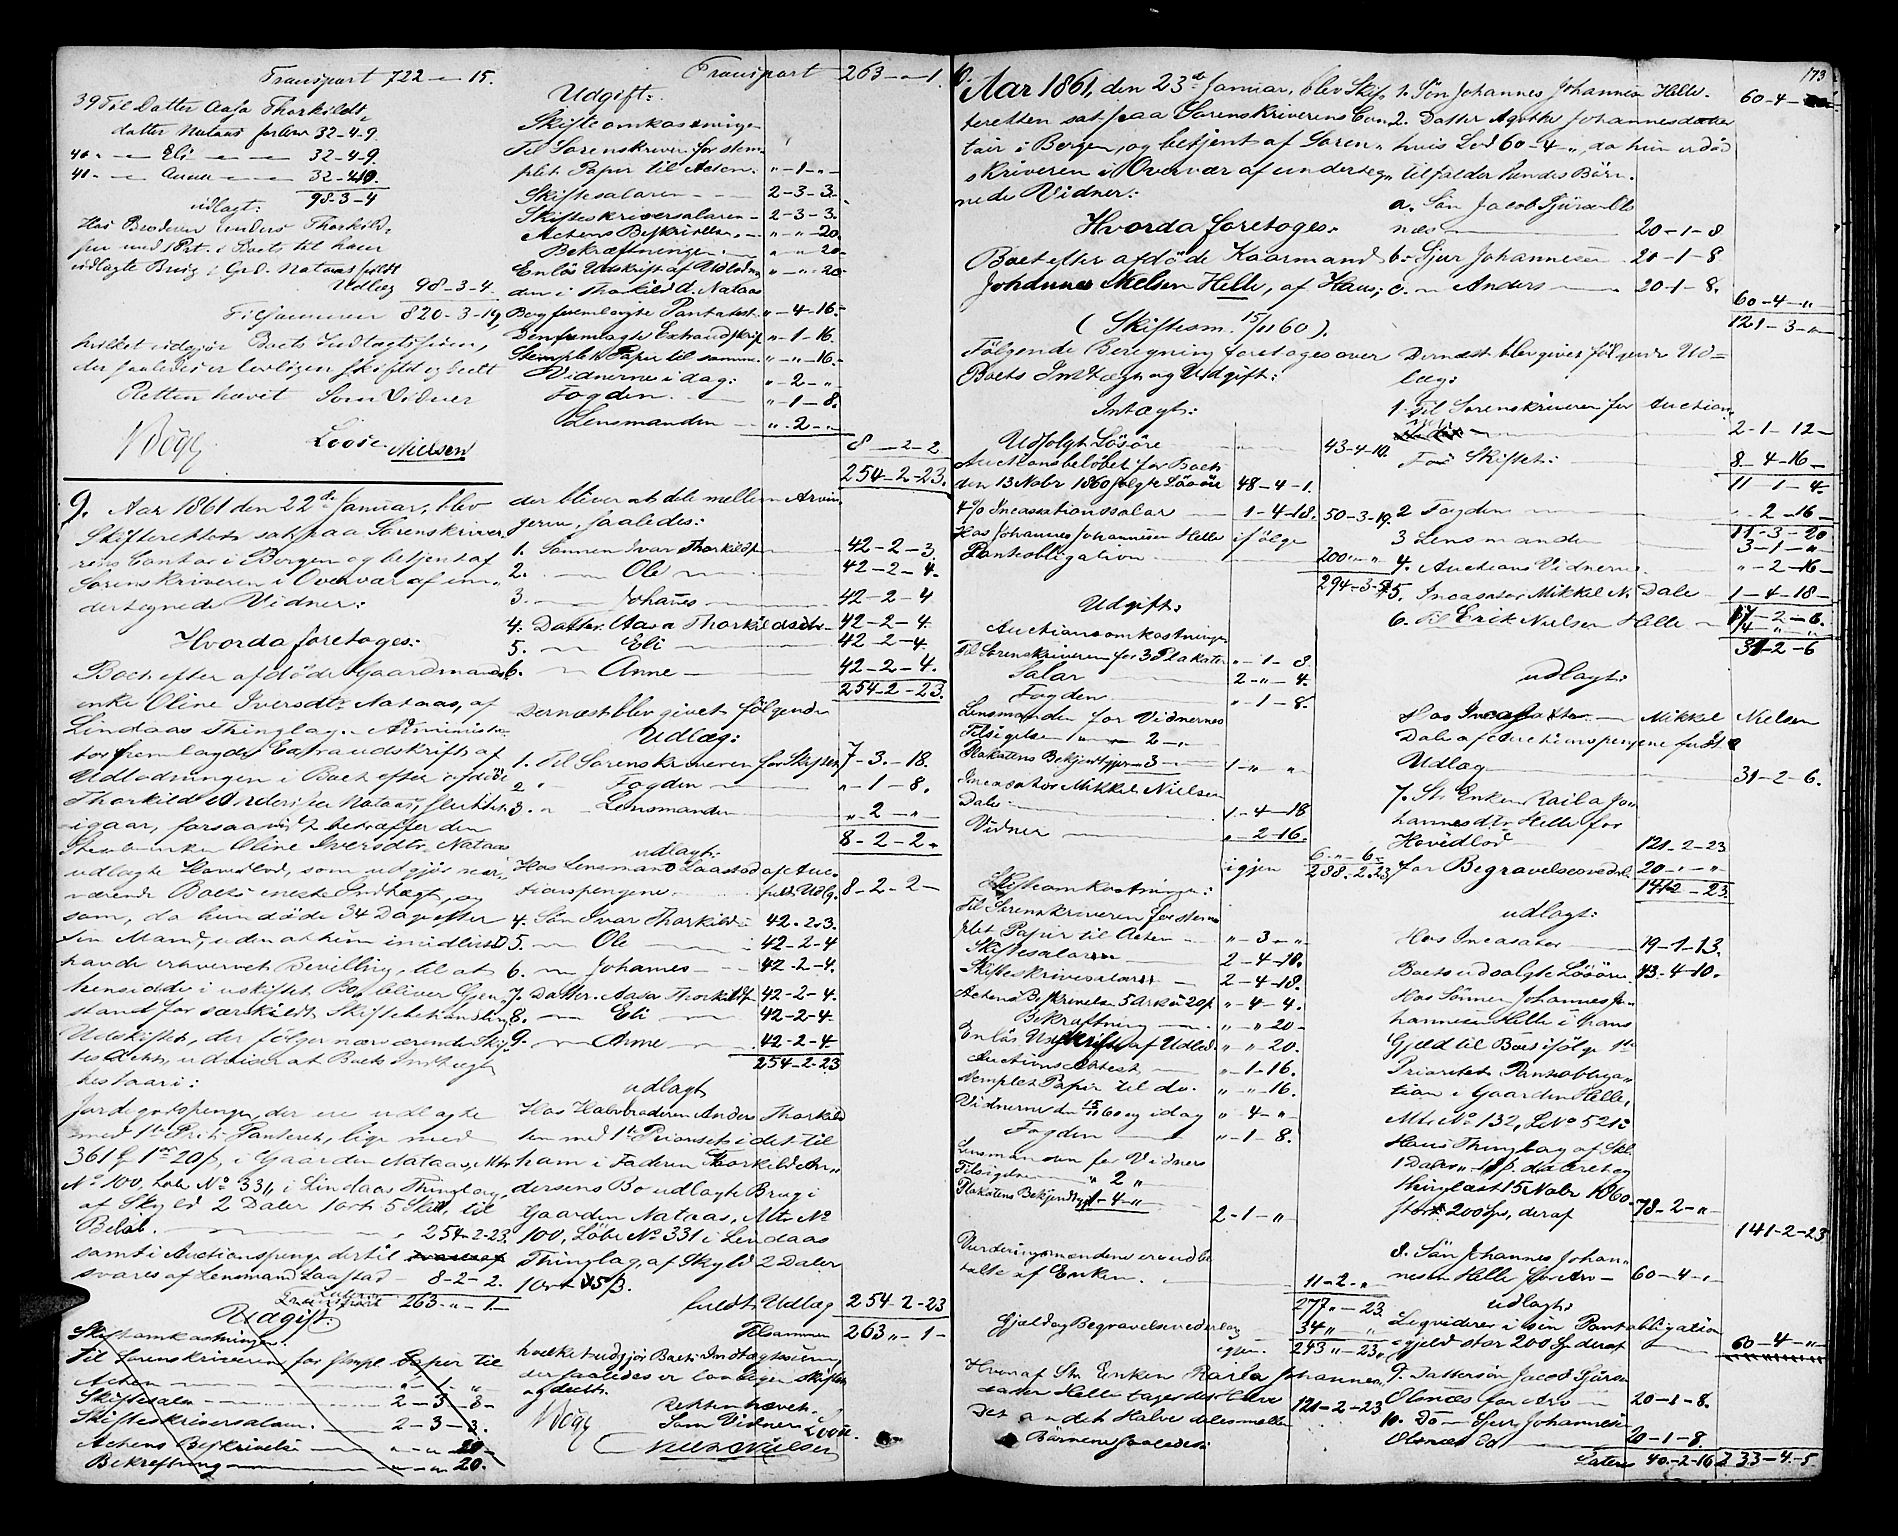 Transport 722 - " - 15.
39 Til Datter Aasa Thorkilds
datter Nataas forlov 32-4-9.
40. - " - Eli - " - 32-4-9.
41. - " - Anne - " - 32-4-10.
98-3-4
udlagt:
Hos Broderen Anders Thorkild-
sen med Prt. i Boets til ham
udlagte Brug i Grd. Nataas fuldt
Udlæg 98-3-4.
Tilsammen 820-3-19,
hvilket udgjør Boets Indtægtssum,
der saaledes er lovligen skiftet og deelt
Retten hævet Som Vidner
Bøgg Loose. Nielsen
9. Aar 1861 den 22de Januar, blev
Skifteretten sat paa Sorenskrive-
rens Contor i Bergen og betjent af
Sorenskriveren i Overvær af un-
dertegnede Vidner:
Hvorda foretoges:
Boet efter afdøde Gaardmands-
enke Oline Iversdtr. Nataas, af
Lindaas Thinglag. Administra-
tor fremlagde Extraudskrift af
Udlodningen i Boet efter afdøde
Thorkild Andersen Nataas, sluttet
igaar, forsaavidt betræffer den
Enke Oline Iversdtr. Nataas
udlagte Hovedlod, som udgjør nær-
værende Boets eneste Indtægt, og
som, da hun døde 34 Dage efter
sin Mand, uden at hun imidlertid
havde erhvervet Bevilling til at
hensidde i uskiftet Bo, bliver Gjen-
stand for særskildt Skiftebehandling
Udskriften, der følger nærværende Skif-
te Acten, udviser at Boets Indtægt
bestaar i:
Jordegodspenge, der ere udlagte
med 1ste Prits Panteret, lige med
361 Sp 1 ort 20 s, i Gaarden Nataas, Mtr.
No 100, Løb No 331, i Lindaas Thinglag,
af Skyld 2 Daler 1 ort 5 Skill, til
Beløb. 254-2-23.
samt i Auctionspenge der til
svares af Lensmand Laastad - 8-2-2.
263 - " - 1 -
Udgift.
Skifteomkostninger.
Til Sorenskriveren for stempl. Papir til
Acten " - 1 - "
Skiftesalar 2 - 3 - 3 -
Skifteskriversalaren. 2 - 3 - 3.
Actens Beskrivelse " - " - 20 -
Bekræftning " - " - 20.
Transport 263 - " - 1
Udgift:
Skifteomkostninger
Til Sorenskriveren for stem-
plet Papir til Acten. " - 1 - " -
Skiftesalaren 2 - 3 - 3.
Skifteskriversalaren - 2 - 3 - 3.
Actens Beskrivelse. " - " - 20.
Bekræftningen " " 20 -
Enløs Udskrift af Udlodnin " - " - 20 -
den i Thorkild A. Nataas
Bo fremlagte Pantattest. " - 4 - 16 -
Den fremlagte Extraudskrift " - 1 - 16.
Stemplet Papir til samme. " - " - 16 -
Vidnerne i dag: " - 2 - "
Fogden. " - 1 - 8.
Lensmanden " - 2 - "
8 - 2 - 2
254 - 2 - 23.
der bliver at dele mellem Arvin-
gerne, saaledes:
1. Sønnen Ivar Thorkilds. 42 - 2 - 3.
2. Ole 42 - 2 - 4.
3. Johannes 42 - 2 - 4
4. Datter. Aasa Thorkildsdtr. 42 - 2 - 4.
5. Eli 42 2 - 4.
6. Anne 42 - 2 - 4.
254 - 2 - 23.
Dernæst blev givet følgende
Udlæg:
1. Til Sorenskriveren for Skiftet 7 - 3. - 18.
2 " Fogden " - 1 - 8.
3. " Lensmanden " 2 - " -
8 - 2 - 2 "
udlagt:
Hos Lensmand Laastad af Auc-
tionspengene fuldt Udlg. 8 - 2 - 2 -
4. Søn Ivar Thorkilds. 42 - 2 - 3.
5. Ole 42 - 2 - 4
6. Johannes 42 - 2 - 4.
7. Datter. Aasa Thorkildsdtr 42 - 2 - 4.
8. Eli 42 - 2 - 4.
9. Anne 42 - 2 - 4.
254 - 2 - 23
udlagt
Hos Halvbroderen Anders Thorkild
sen med 1ste Prioritet i det til
ham i Faderen Thorkild An-
dersens Bo udlagte Brug i
Gaarden Nataas, Mtr. No
100, Løbe No 331 i Lindaas
Thinglag, af Skyld 2 Daler
1 ort 5 s.
fuldt Udlæg 254 - 2 - 23
Tilsammen 263 " - 1 -
hvilket udgjør Boets Indtægtssum,
der saaledes er lovligen skiftet
og deelt.
Retten hævet.
Bøgg Som Vidner Loose.
Nils Nielsen
173
10. Aar 1861, den 23de Januar, blev Skif-
teretten sat paa Sorenskriverens Con-
toir i Bergen, og betjent af Soren-
skriveren i Overvær af underteg-
nede Vidner:
Hvorda foretoges.
Boet efter afdøde Kaarmand
Johannes Nielsen Helle, af Haus;
(Skiftesm. 15/11 60).
Følgende Beregning foretoges over
Boets Indtægt og Udgift:
Indtægt:
Udsolgt Løsøre 43 - 4 - 10.
Auctionsbeløbet for Boets
den 13 Nobr 1860 solgte Løsøre 48 - 4 - 1.
4 % Incassationssalar 1 - 4 - 18. 50 - 3 - 19.
Hos Johannes Johannesen Helle ifølge
Panteobligation 200 " "
294 - 3 - 5
Udgift:
Auctionsomkostninger
Til Sorenskriveren for 3 Plakater " - 1 - 8.
Salar 2 - " - 4.
Fogden " - 1 - 8.
Lensmanden for Vidnernes
Tilsigelse " 2 - "
Plakatens Bekjendtgj. - 3 - 1 - " "
Incasator Mikkel Nielsen
Dale 1 - 4 - 18
Vidner " 2 - 16.
6 - " - 6 -
igjen 288 - 2 - 23
Skifteomkostninger:
Til Sorenskriveren for stem-
plet Papir til Acten " - 3 - " -
Skiftesalaren 2 - 4 - 18.
Skifteskriversalaren 2 - 4 - 18.
Actens Beskrivelse 5 Ark à 20 s. " - 4 - 4.
Bekræftning " - " 20 -
Enløs Udskrift af Udlod. " - " 20.
Auctionsattest " - 1 - 16.
stemplet Papir til do. " - " 16.
Vidnerne den 15/11 60 og idag " 4 - "
Fogden " - 1 - 8.
Lensmanden for Vidners
Tilsigelse " 2 "
Plakatens Bekjendtgj. 1 - 4 - "
2 - 1 - "
Vurderingsmændene ere udbe-
talte af Enken.
11 - 2 - "
277 " - 23.
Gjæld og Begravelsesvederlag 34 " "
igjen. 243 " - 23 "
Hvoraf Str. Enken Raila Johannes-
datter Helle tager det Halve 121 - 2 - 23
Det andet Halve deles mellem
Børnene saaledes:
1. Søn Johannes Johannesen Helle. 60 - 4 -
2. Datter Agathe Johannesdatter
hvis Lod 60 - 4 - ", da hun er død
tilfalder hendes Børn.
a. Søn Jacob Sjursen Ols-
næs 20 - 1 - 8
b. Sjur Johannesen 20 - 1 - 8
c. Anders 20 - 1 - 8.
60 - 4 - "
121 - 3 - "
Dernæst blev given følgende Ud-
læg:
1. Til Sorenskriveren for Auctionen
2 - 1 - 12 -
For Skiftet: 8 - 4 - 16 -
11 1 - 4.
2 Fogden " 2 - 16 -
11 - 3 - 20
3 Lensmanden 3 - 1 - "
4. Auctions Vidnerne " - 2 - 16 -
5. Incasator Mikkel N. Dale 1 - 4 - 18 -
17 - 2 - 6.
6. Til Erik Nielsen Helle 14 " "
31 - 2 - 6
udlagt:
Hos Incasator Mikkel Nielsen
Dale af Auctionspengene fuldt
Udlæg 31 - 2 - 6.
7. Str. Enken Raila Jo-
hannesdtr. Helle for
Hovedlod 121 - 2 - 23
for Begravelsesvederl. 20 - " - "
141 - 2 - 23.
udlagt:
Hos Incasator 19 - 1 - 13.
Boets udsolgte Løsøre 43 - 4 - 10.
Hos Sønnen Johannes Jo-
hannesen Helle i hans
Gjæld til Boet ifølge 1ste
Prioritets Panteobliga-
tion i Gaarden Helle,
Mtr. No 132, L No 521
Haus Thinglag af Skl.
1 Daler " - 18 s. dateret og
thinglæst 15 Nobr 1860.
stor 200 Sp, deraf 78 - 2 - "
141 - 2 - 23
8. Søn Johannes Johan-
nesen Helle for Arv - 60 - 4 - "
udlagt:
Liqviderer i sin Pantobligation
gjeld stor 200 Sp deraf 60 - 4 - "
9. Dattersøn Jacob Sjursen
Olsnæs for Arv 20 - 1 - 8.
10. Do - Sjur Johannesen
Olsnæs 20 - 1 - 8.
Lateres 40 - 2 - 16 233 - 4 - 5